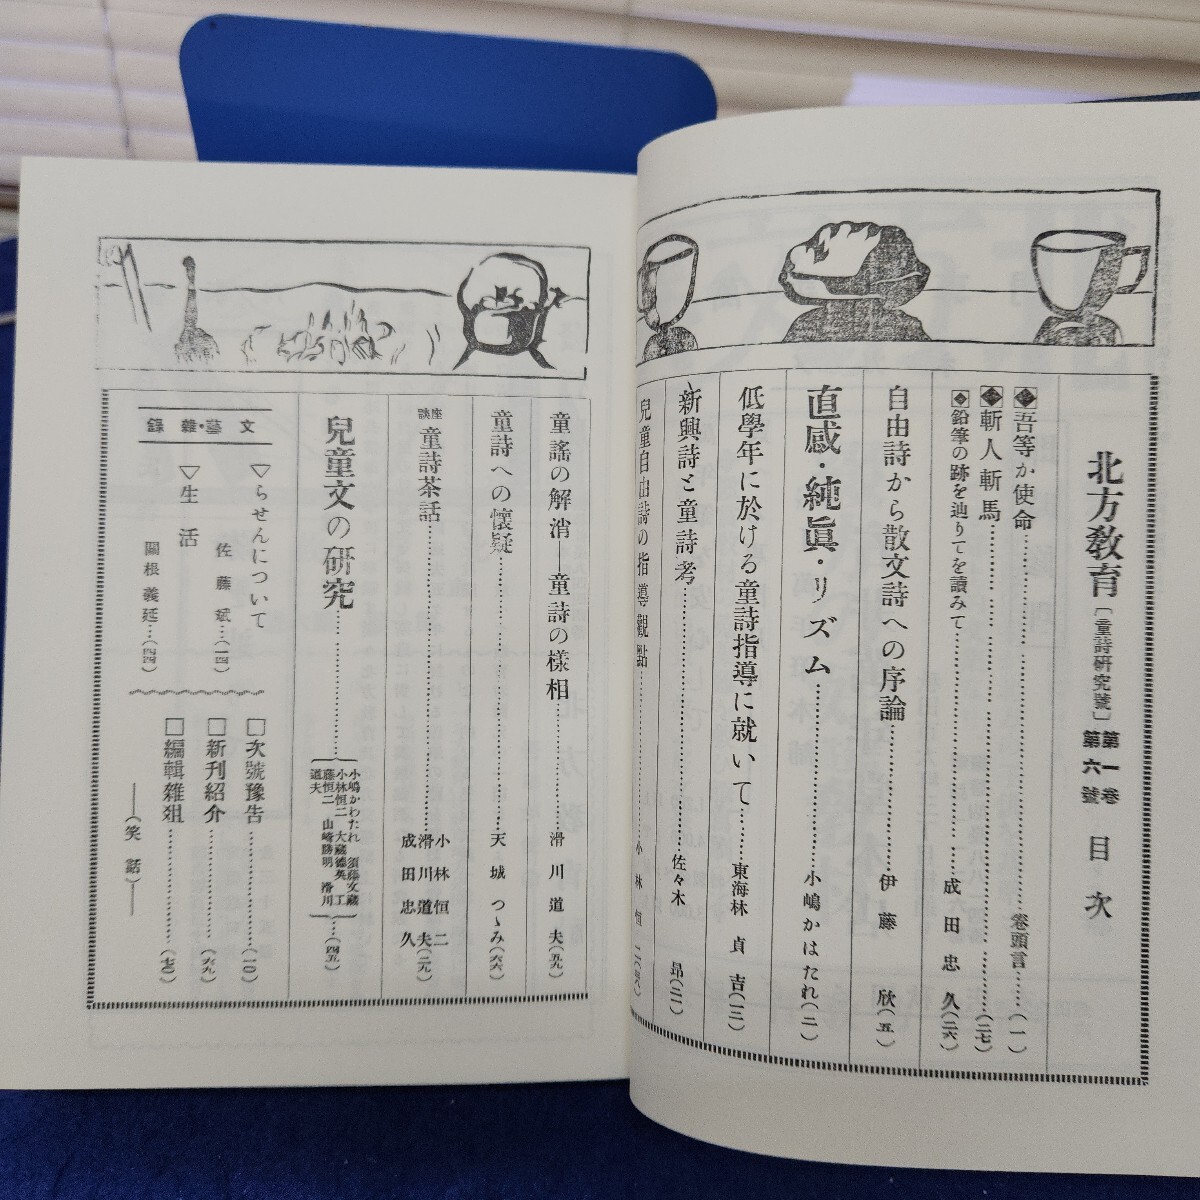 北方教育〔童詩研究號〕第一卷第六號 目次
吾等が使命……卷頭言……(一)
斬人斬馬……(二七)
鉛筆の跡を辿りてを讀みて……成田忠久(二六)
自由詩から散文詩への序論……伊藤欣(五)
直感・純眞・リズム……小嶋かはたれ(二)
低學年に於ける童詩指導に就いて……東海林貞吉(三)
新興詩と童詩考……佐々木昻(三一)
兒童自由詩の指導觀點……小林恒二
童謠の解消―童詩の樣相……滑川道夫(五九)
童詩への懷疑……天城つゝみ(六六)
座談 童詩茶話……小林恒二 滑川道夫 成田忠久(二九)
兒童文の研究……{小嶋かわたれ 須藤文藏 小林恒二 大藏德英 工藤恒二 山崎勝明 滑川道夫}……(四五)
文藝・雜錄
▽らせんについて
佐藤斌…(一四)
▽生活
關根義延…(四四)
□次號豫告……(一〇)
□新刊紹介……(六九)
□編輯雜俎……(七〇)
――(笑話)――